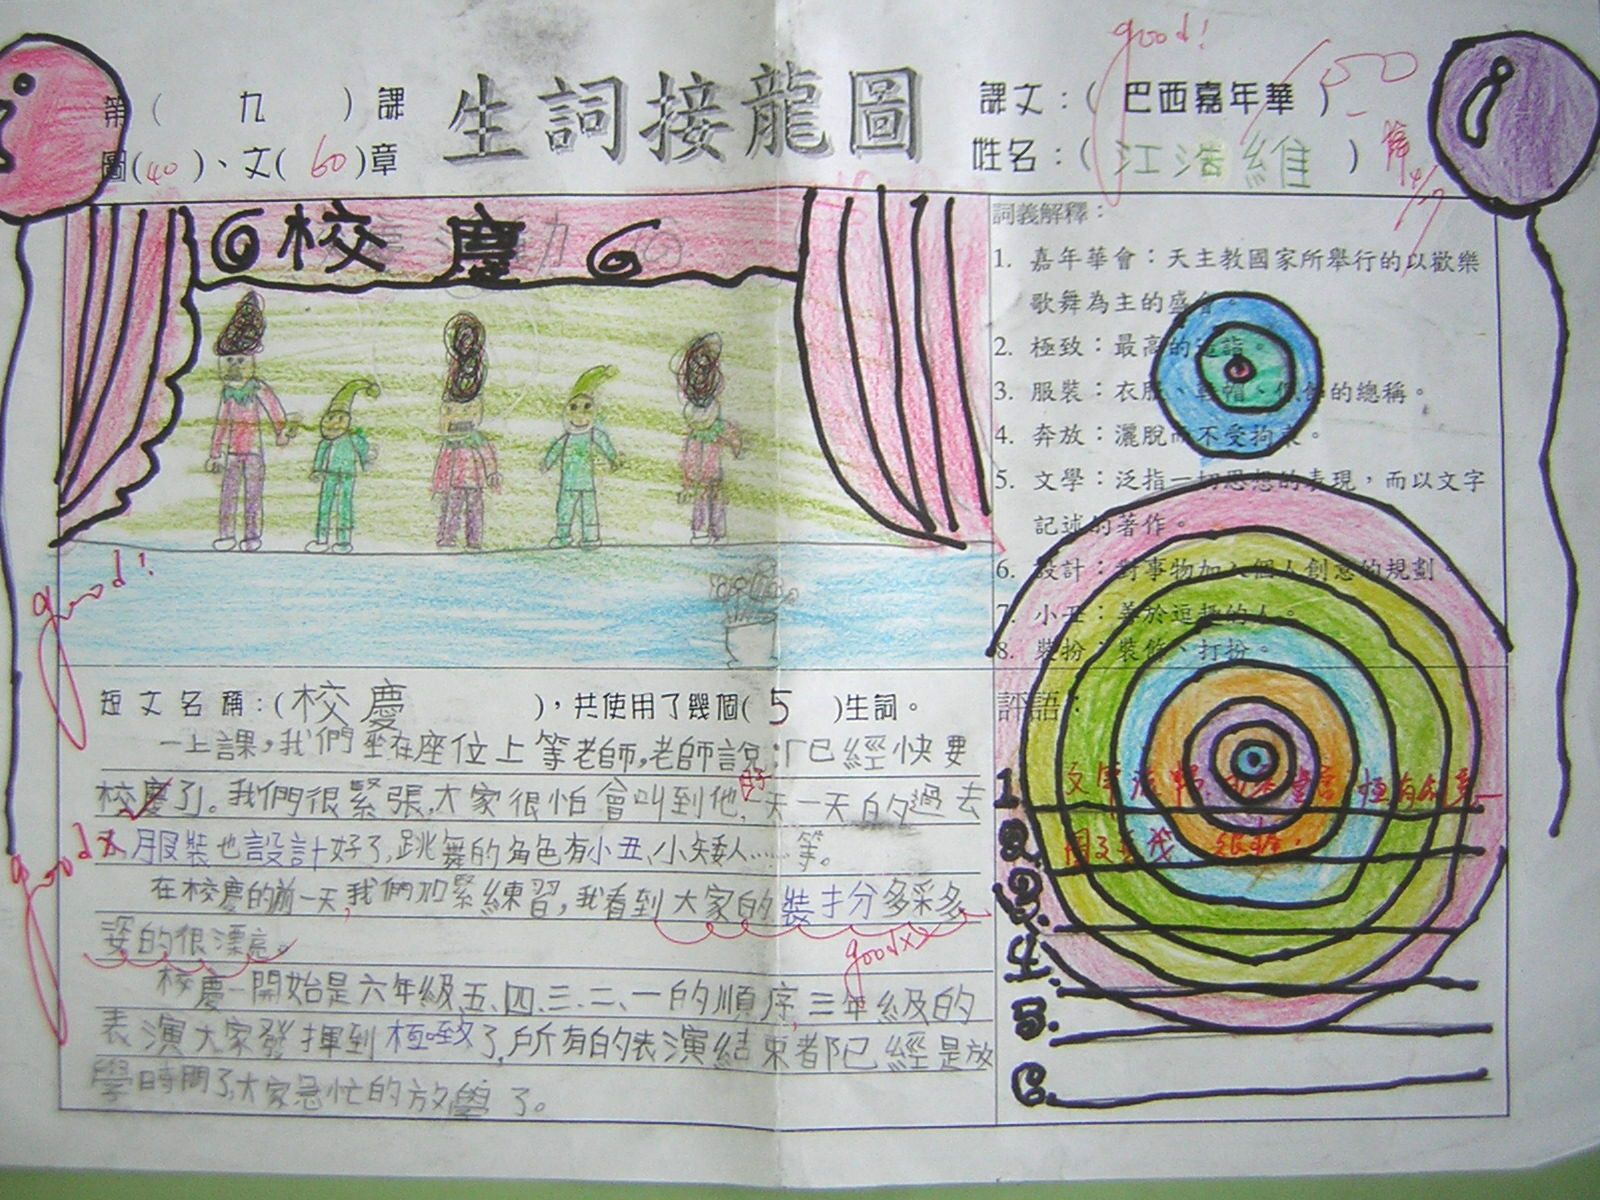 good!
第( 九 )課 生詞接龍圖 課文:( 巴西嘉年華 )
圖(40)、文(60)章 姓名:( 江浩維 )
校慶
詞義解釋:
1. 嘉年華會:天主教國家所舉行的以歡樂
歌舞為主的盛會。
2. 極致:最高的造詣。
3. 服裝:衣服、鞋帽、佩飾的總稱。
4. 奔放:灑脫而不受拘束。
5. 文學:泛指一切思想的表現,而以文字
記述的著作。
6. 設計:對事物加入個人創意的規劃。
7. 小丑:善於逗趣的人。
8. 裝扮:裝飾、打扮。
good!
短文名稱:(校慶 ),共使用了幾個( 5 )生詞。
一上課,我們坐在座位上等老師,老師說:「已經快要
校慶了。我們很緊張,大家很怕會叫到他,一天一天的過去
了,服裝也設計好了,跳舞的角色有小丑、小矮人……等。
在校慶的前一天,我們加緊練習,我看到大家的裝扮多彩多
姿的很漂亮。
校慶一開始是六年級五、四、三、二、一的順序,三年級的
表演大家發揮到極致了,所有的表演結束都已經是放
學時間了,大家急忙的放學了。
good
goodxx
評語:
1.
2.
3.
4.
5.
6.